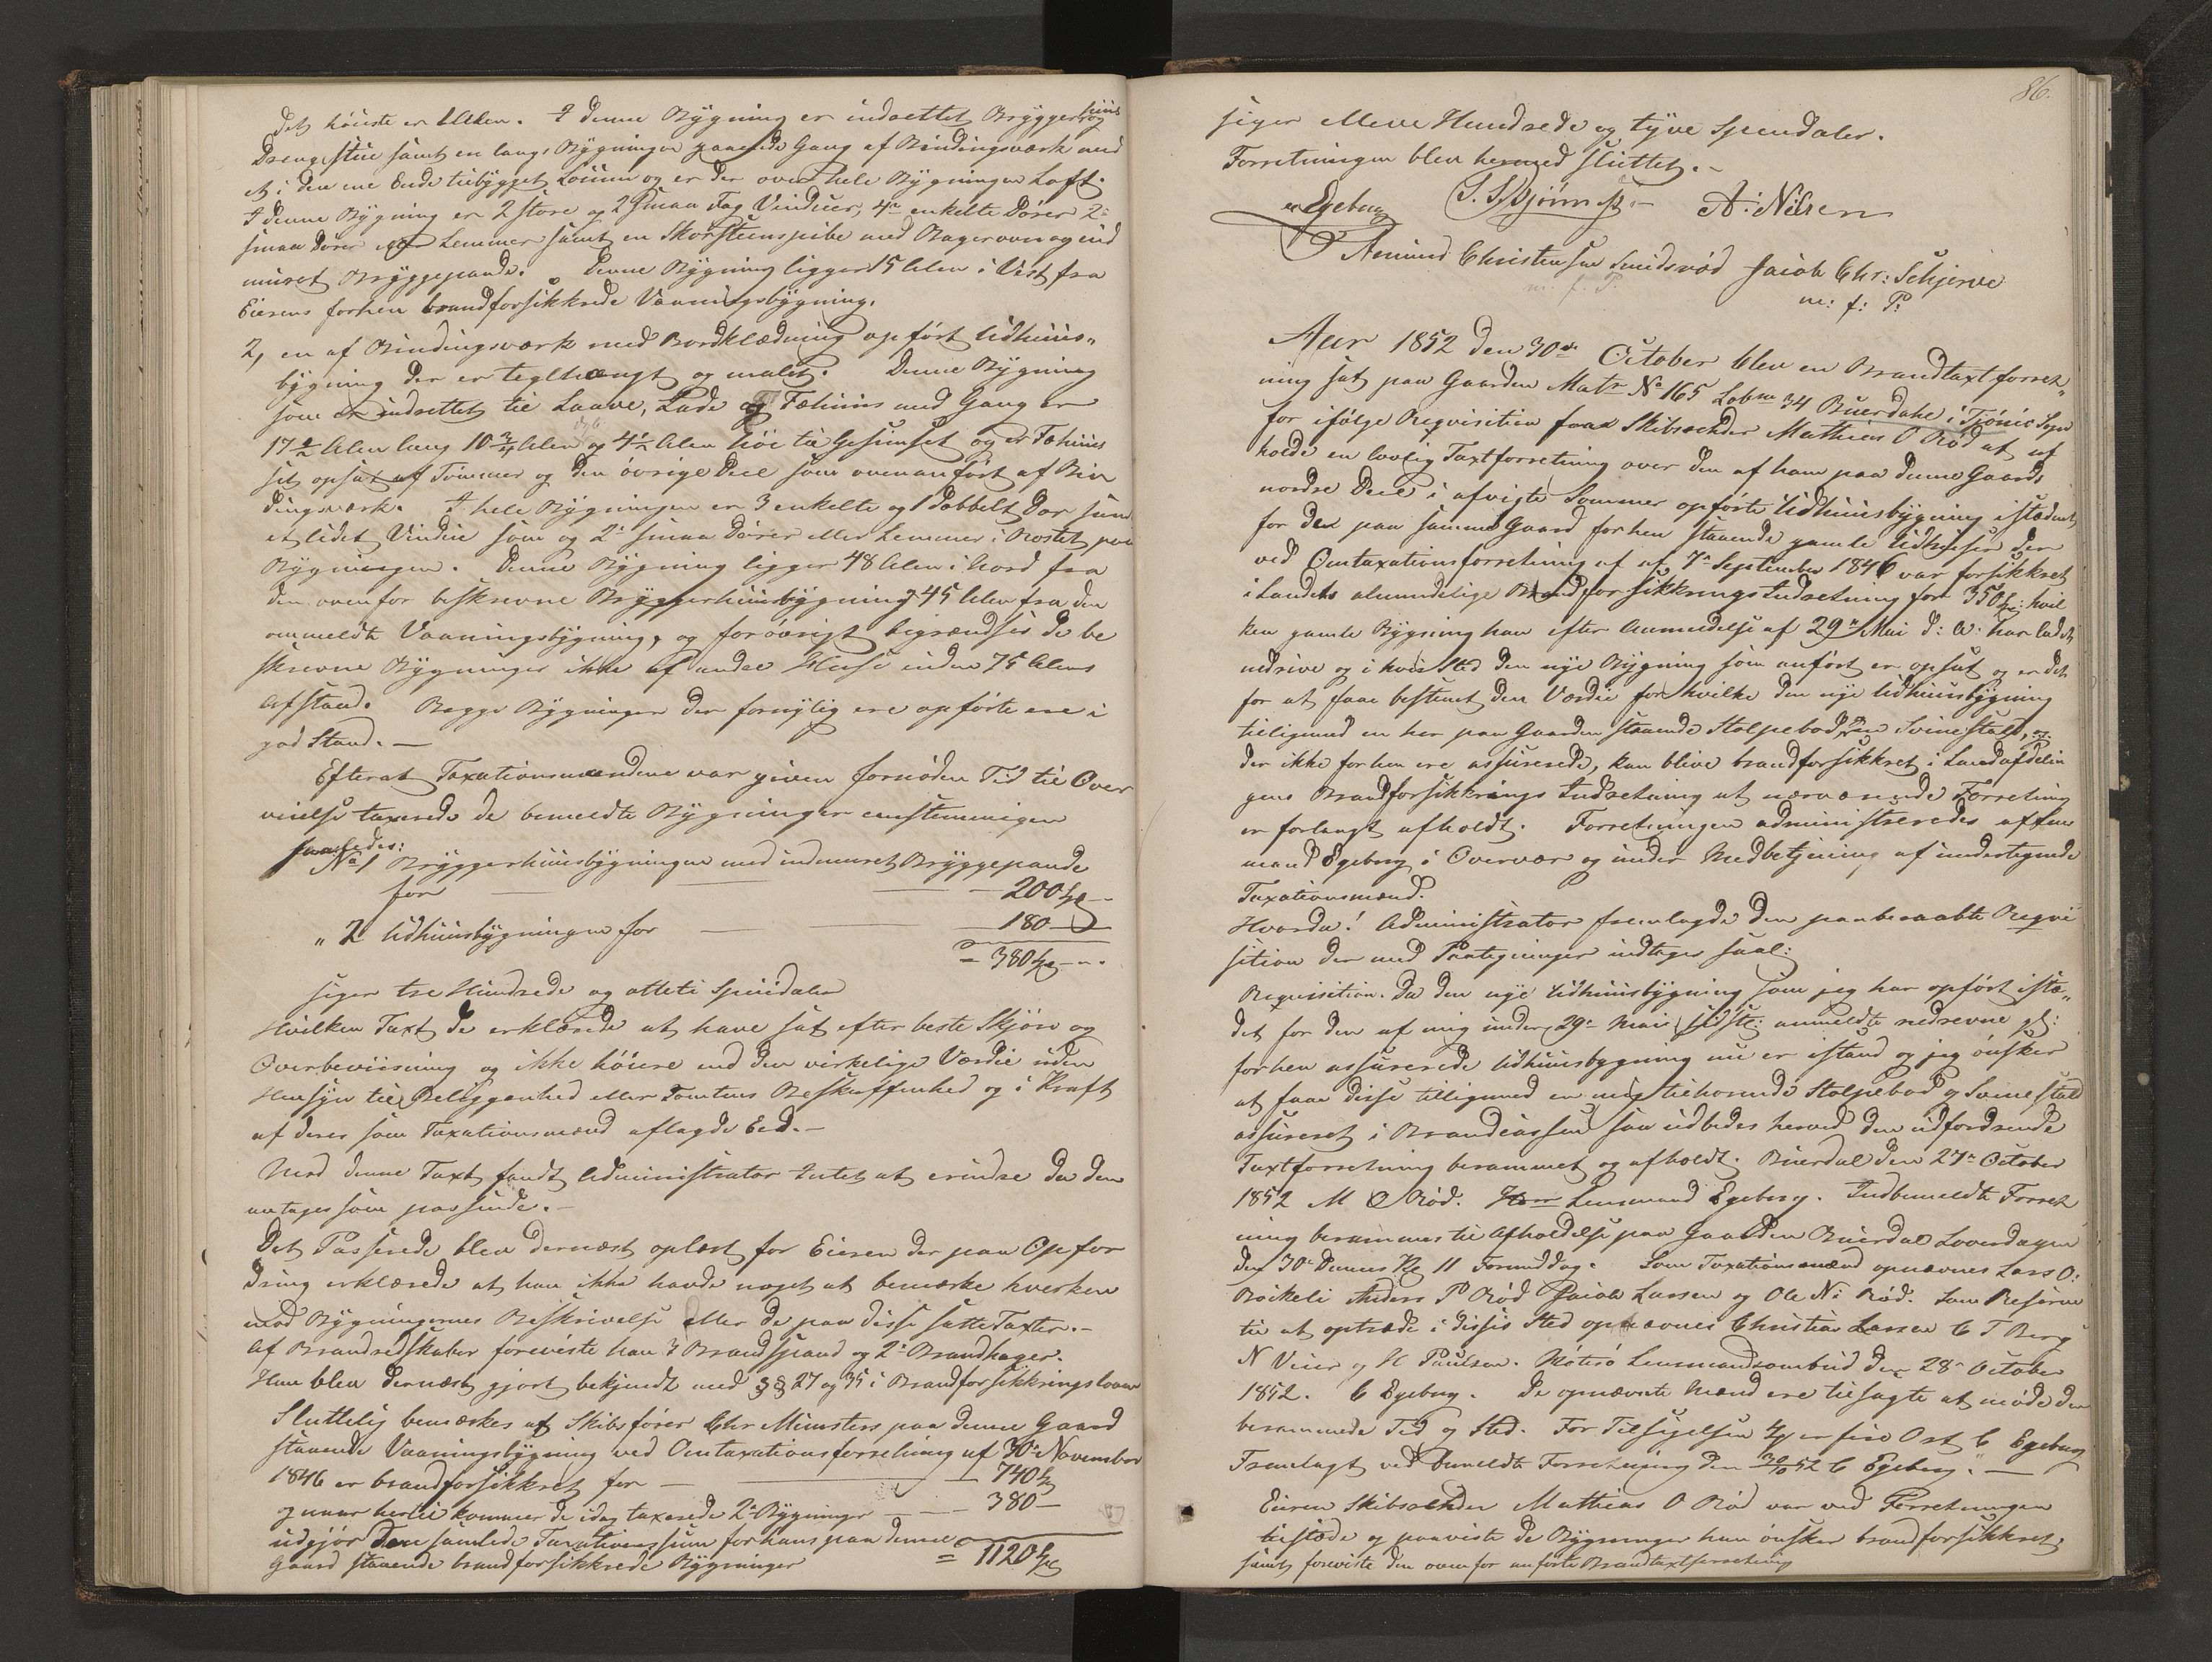 det høieste er Alen. I denne Bygning er indrettet Bryggerhuus og
Drengestue samt en langs Bygningen gaaende Gang af Bindingsværk med
et i den ene Ende tilbygget Locum og er der over hele Bygningen Loft.
I denne Bygning er 2 store og 2 smaa Fag Vinduer, 4re enkelte Dører 2
smaa Dører Lemmer samt en Skorsteenspibe med Bagerovn og ind
muret Bryggepande. Denne Bygning ligger 15 Alen i Vest fra
Eierens forhen brandforsikkrede Vaaningsbygning.
2, en af Bindingsværk med Bordklædning opført Udhuus„
bygning der er teglhængt og malet. Denne Bygning
som er indrettet til Laave, Lade og Fæhuus med Gang er
17 1/2 Alen lang 10 3/4 Alen og 4 1/2 Alen høi til Gesimset og er Fæhuus
et opsat af Tømmer og den øvrige Deel som ovenanført af Bin
dingsværk. I hele Bygningen er 3 enkelte og 1 dobbelt Dør samt
et lidet Vindue som og 2 smaa Dører eller Lemmer i Røstet paa
Bygningen. Denne Bygning ligger 48 Alen i Nord fra
den ovenfor beskrevne Bryggerhuusbygning 45 Alen fra den
ommeldte Vaaningsbygning, og forøvrigt begrændses de be
skrevne Bygninger ikke af andre Huse inden 75 Alens
Afstand. Begge Bygninger der fornylig ere opførte ere i
god Stand. —
Efterat Taxationsmændene var given fornøden Tid til Over
veielse taxerede de bemeldte Bygninger eenstemmigen
saaledes:
No 1 Bryggerhuusbygningen med indmuret Bryggepande
for — 200 Spd
„ 2 Udhuusbygningen for — 180 —
= 380 Spd
siger tre Hundrede og otteti Speciedaler
Hvilken Taxt de erklærede at have sat efter beste Skjøn og
Overbeviisning og ikke høiere end den virkelige Værdie uden
Hensyn til Beliggenhed eller Tomtens Beskaffenhed og i Kraft
af deres som Taxationsmænd aflagde Eed. —
Mod denne Taxt fandt Administrator Intet at erindre da den
antages som passende. —
Det Passerede blev dernæst oplæst for Eieren der paa Opfor
dring erklærede at han ikke havde noget at bemærke hverken
mod Bygningernes Beskrivelse eller de paa disse satte Taxter. —
Af Brandredskaber foreviste han 3 Brandspand og 2 Brandhager.
Han blev dernæst gjort bekjendt med §§ 27 og 35 i Brandforsikkringsloven
Sluttelig bemærkes at Skibsfører Chr Münsters paa denne Gaard
staaende Vaaningsbygning ved Omtaxationsforretning af 30 November
1846 er brandforsikkret for — 740 Spd
og naar hertil kommer de idag taxerede 2 Bygninger — 380 —
udgjør den samlede Taxationssum for hans paa denne
Gaard staaende brandforsikkrede Bygninger = 1120 Spd
86.
siger elleve Hundrede og tyve Speciedaler.
Forretningen blev hermed sluttet. —
Egeberg S. Skjønn A: Nilsen
Amund Christensen Smidsrød Jacob Chr: Schjerve
m: f: P. m: f: P:
Aar 1852 den 30de October blev en Brandtaxtforret„
ning sat paa Gaarden Matr No 165 Løbno 34 Buerdahl i Tjømø Sogn
for ifølge Reqvisition fra Skibsrehder Mathias O Rød at af
holde en lovlig Taxtforretning over den af ham paa denne Gaards
nordre Deel i afvigte Sommer opførte Udhuusbygning istædet
for den paa samme Gaard forhen staaende gamle Udhuus der
ved Omtaxationsforretning af 7 September 1846 var forsikkret
i Landets almindelige Brandforsikkrings Indretning for 350 Spd: hvil
ken gamle Bygning han efter Anmeldelse af 29 Mai d: A: har ladet
nedrive og i hvis Sted den nye Bygning som anført er opsat og er det
for at faae bestemt den Værdie for hvilke den nye Udhuusbygning
tilligemed en her paa Gaarden staaende Stolpebod en Sviinestald,
der ikke forhen ere assurerede, kan blive brandforsikkret i Landafdelin
gens Brandforsikkrings Indretning at nærværende Forretning
er forlangt afholdt. Forretningen administreredes af Lens
mand Egeberg i Overvær og under Medbetjening af undertegnede
Taxationsmænd.
Hvorda! Administrator fremlagde den paaberaabte Reqvi
sition der med Paategninger indtages saal:
Reqvisition. Da den nye Udhuusbygning som jeg har opført istæ„
det for den af mig under 29 Mai sidstl: anmeldte nedrevne gl:
forhen assurerede Udhuusbygning nu er istand og jeg ønsker
at faae disse tilligemed en mig tilhørende Stolpebod og Sviinestald
assureret i Brandcassen saa udbedes herved den udfordrende
Taxtforretning berammet og afholdt. Buerdal den 27 October
1852 M O Rød. Herr Lensmand Egeberg. Indbemeldte Forret
ning berammes til Afholdelse paa Gaarden Buerdal Loverdagen
den 30 Dennes Kl 11 Formiddag. Som Taxationsmænd opnævnes Lars O:
Røikeli Anders P Rød Jacob Larsen og Ole N: Rød. Som Reserve
til at optræde i disses Sted opnævnes Christian Larsen C T Berg
N Veier og H Paulsen. Nøterø Lensmandsombud den 28 October
1852. C Egeberg. De opnævnte Mænd ere tilsagte at møde den
berammede Tid og Sted. For Tilsigelsen 4 er fire Ort C Egeberg
Fremlagt ved bemeldte Forretning den 30/10 52 C Egeberg. —
Eieren Skibsrehder Mathias O Rød var ved Forretningen
tilstæde og paaviste de Bygninger han ønsker brandforsikkret,
samt foreviste den ovenfor anførte Brandtaxtforretning